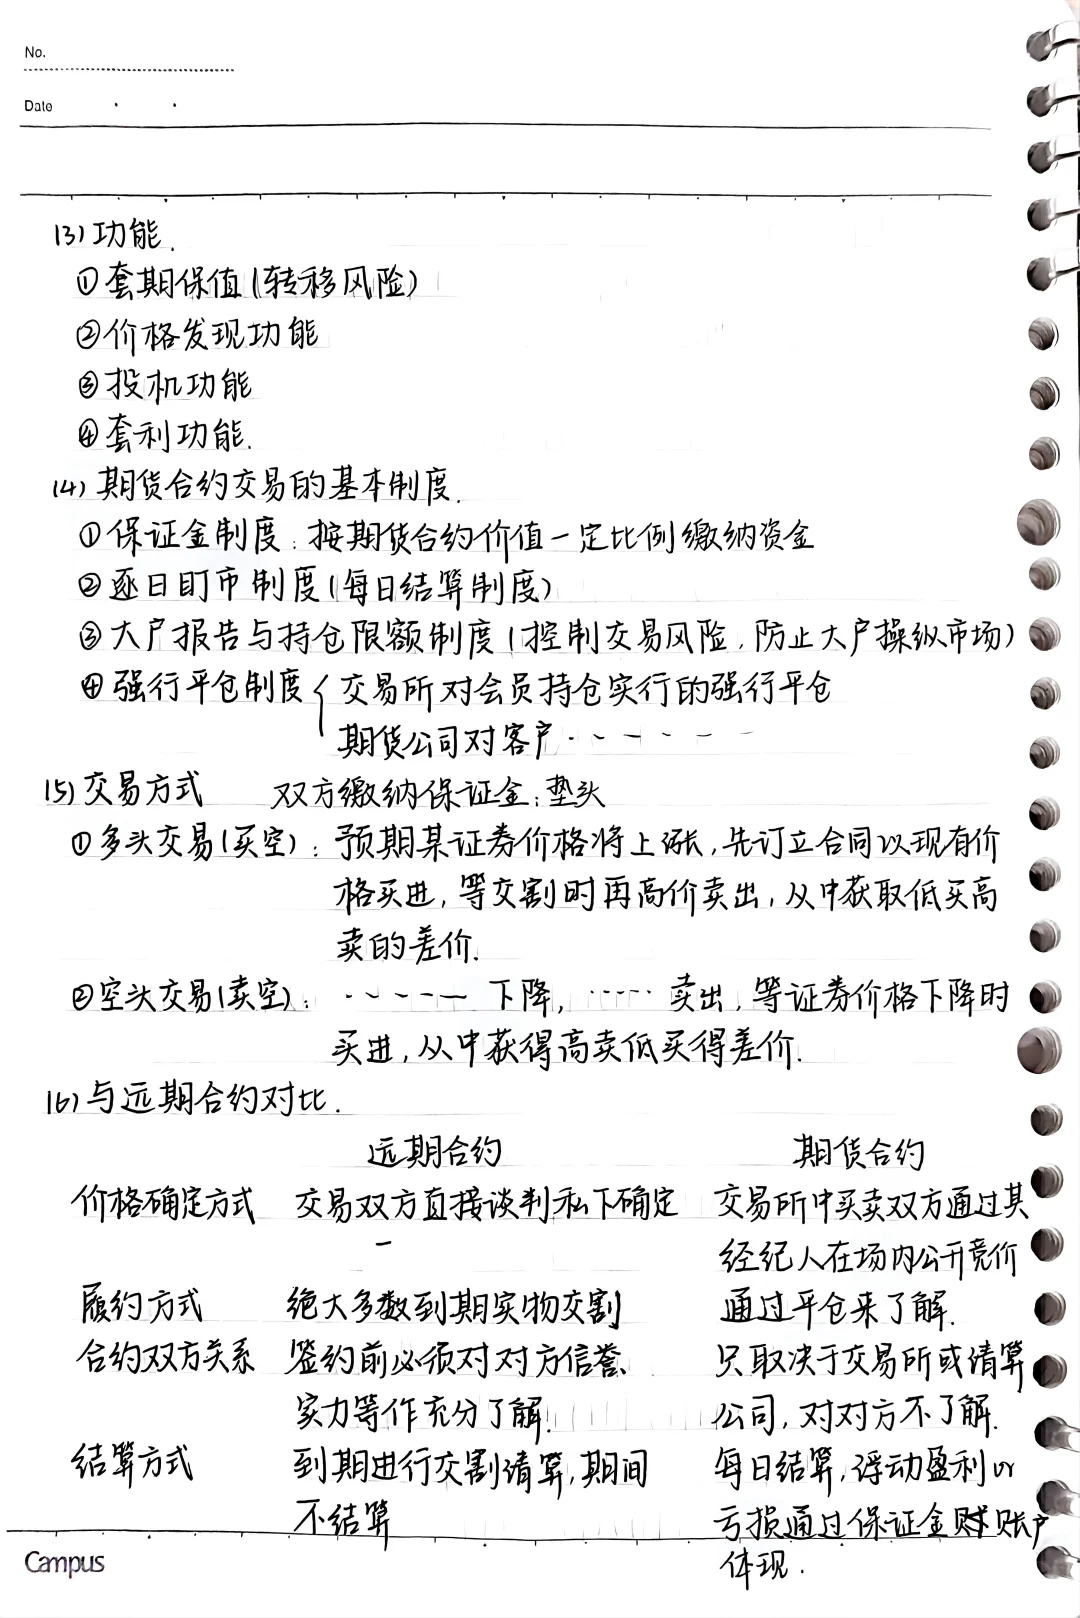 No.
Date
(3) 功能.
①套期保值(转移风险)
②价格发现功能
③投机功能
④套利功能.
(4) 期货合约交易的基本制度.
①保证金制度:按期货合约价值一定比例缴纳资金
②逐日盯市制度(每日结算制度)
③大户报告与持仓限额制度(控制交易风险,防止大户操纵市场)
④强行平仓制度{交易所对会员持仓实行的强行平仓
期货公司对客户·、、----
(5) 交易方式 双方缴纳保证金:垫头
①多头交易(买空):预期某证券价格将上涨,先订立合同以现有价
格买进,等交割时再高价卖出,从中获取低买高
卖的差价.
②空头交易(卖空):----- 下降,····· 卖出,等证券价格下降时
买进,从中获得高卖低买得差价.
(6) 与远期合约对比.
远期合约 期货合约
价格确定方式 交易双方直接谈判私下确定 交易所中买卖双方通过其
经纪人在场内公开竞价
履约方式 绝大多数到期实物交割 通过平仓来了解.
合约双方关系 签约前必须对对方信誉、 只取决于交易所或清算
实力等作充分了解 公司,对对方不了解.
结算方式 到期进行交割清算,期间 每日结算,浮动盈利or
不结算 亏损通过保证金账户
体现.
Campus